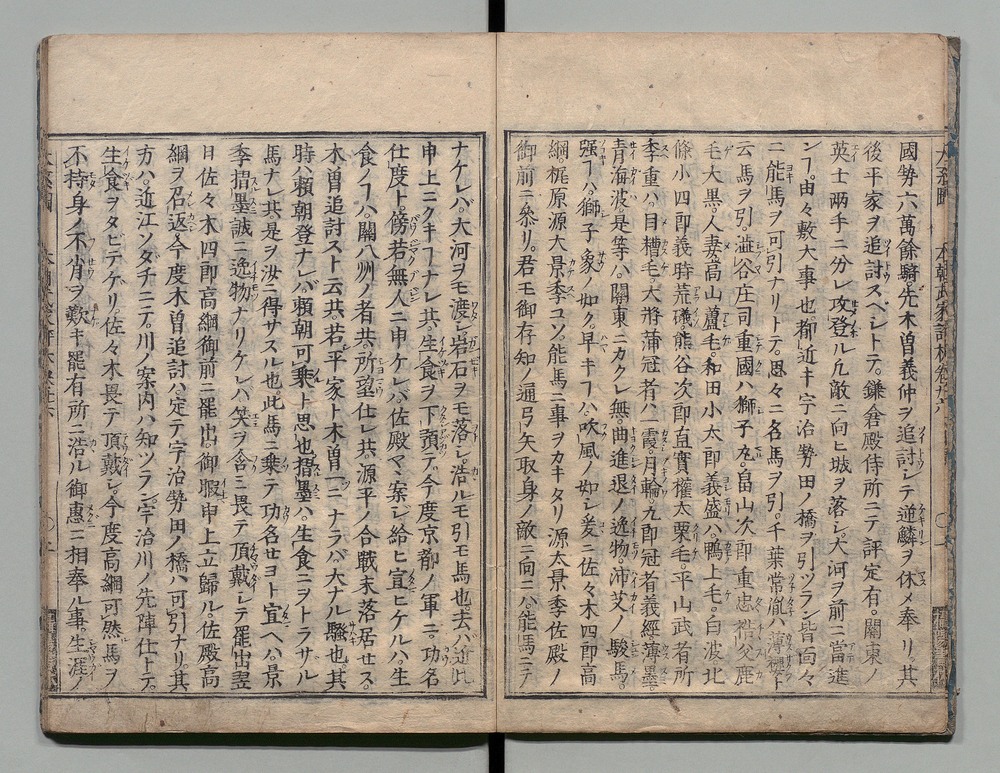 國勢六萬餘騎先木曽義仲ヲ追討シテ逆鱗ヲ休メ奉リ其
後平家ヲ追討スベシトテ。鎌倉殿侍所ニテ評定有。關東ノ
英士兩手ニ分レ攻登ル凡敵ニ向ヒ城ヲ落シ。大河ヲ前ニ當進
ン丁。由々敷大事也。抑近キ宇治勢田ノ橋ヲ引ツラン皆面々
ニ能馬ヲ可引ナリトテ。思々ニ名馬ヲ引。千葉常胤ハ薄櫻ト
云馬ヲ引。澁谷庄司重國ハ獅子丸。畠山次郎重忠秩父鹿
毛大黒。人妻高山蘆毛。和田小太郎義盛ハ。鴨上毛。白波。北
條小四郎義時荒礒。熊谷次郎直實權太栗毛。平山武者所
季重ハ。目糟毛。大將蒲冠者ハ。霞。月輪。九郎冠者義經薄墨。
青海波是等ハ。關東ニカクレ無。曲進退ノ逸物。沛艾ノ駿馬。
强キ丁ハ。獅子象ノ如ク。早キ丁ハ。吹風ノ如シ爰ニ佐々木四郎高
綱。梶原源太景季コソ。能馬ニ事ヲカキタリ源太景季佐殿ノ
御前ニ叅リ。君モ御存知ノ通弓矢取身ノ敵ニ向ニハ。能馬ニテ
ナケレバ。大河ヲモ渡シ。岩石ヲモ落シ。浩ルモ引モ馬也去ハ近此
申上ニクキ丁ナレ共。生食ヲ下預テ。今度京都ノ軍ニ。功名
仕度ト。傍若無人ニ申ケレバ。佐殿マヽ案シ給ヒ宜ヒケルハ。生
食ノ丁ハ。關八州ノ者共。所望仕レ共。源平ノ合戰未落居セス。
木曽追討スト云共。若平家ト木曽一ニナラバ。大ナル騷也。其
時ハ賴朝登ナレバ。賴朝可乘ト思也摺墨ハ。生食ニヲトラザル
馬ナレ共是ヲ汝ニ得サスル也此馬ニ乘テ功名セヨト宜ヘハ。景
季摺墨誠ニ逸物ナリケレバ笑ヲ含ミ畏テ頂戴シテ罷出翌
日佐々木四郎高綱御前ニ罷出。御暇申上立歸ル佐殿高
綱ヲ召返今度木曽追討ハ。定テ宇治勢田ノ橋ハ可引ナリ。其
方ハ。近江ソダチニテ。川ノ案内ハ知ツラン宇治川ノ先陣仕トテ。
生食ヲタビテケリ。佐々木畏テ頂戴シ。今度高綱可然馬ヲ
不持身ノ不肖ヲ歎キ罷有所ニ浩ル御惠ニ相奉ル事。生涯ノ